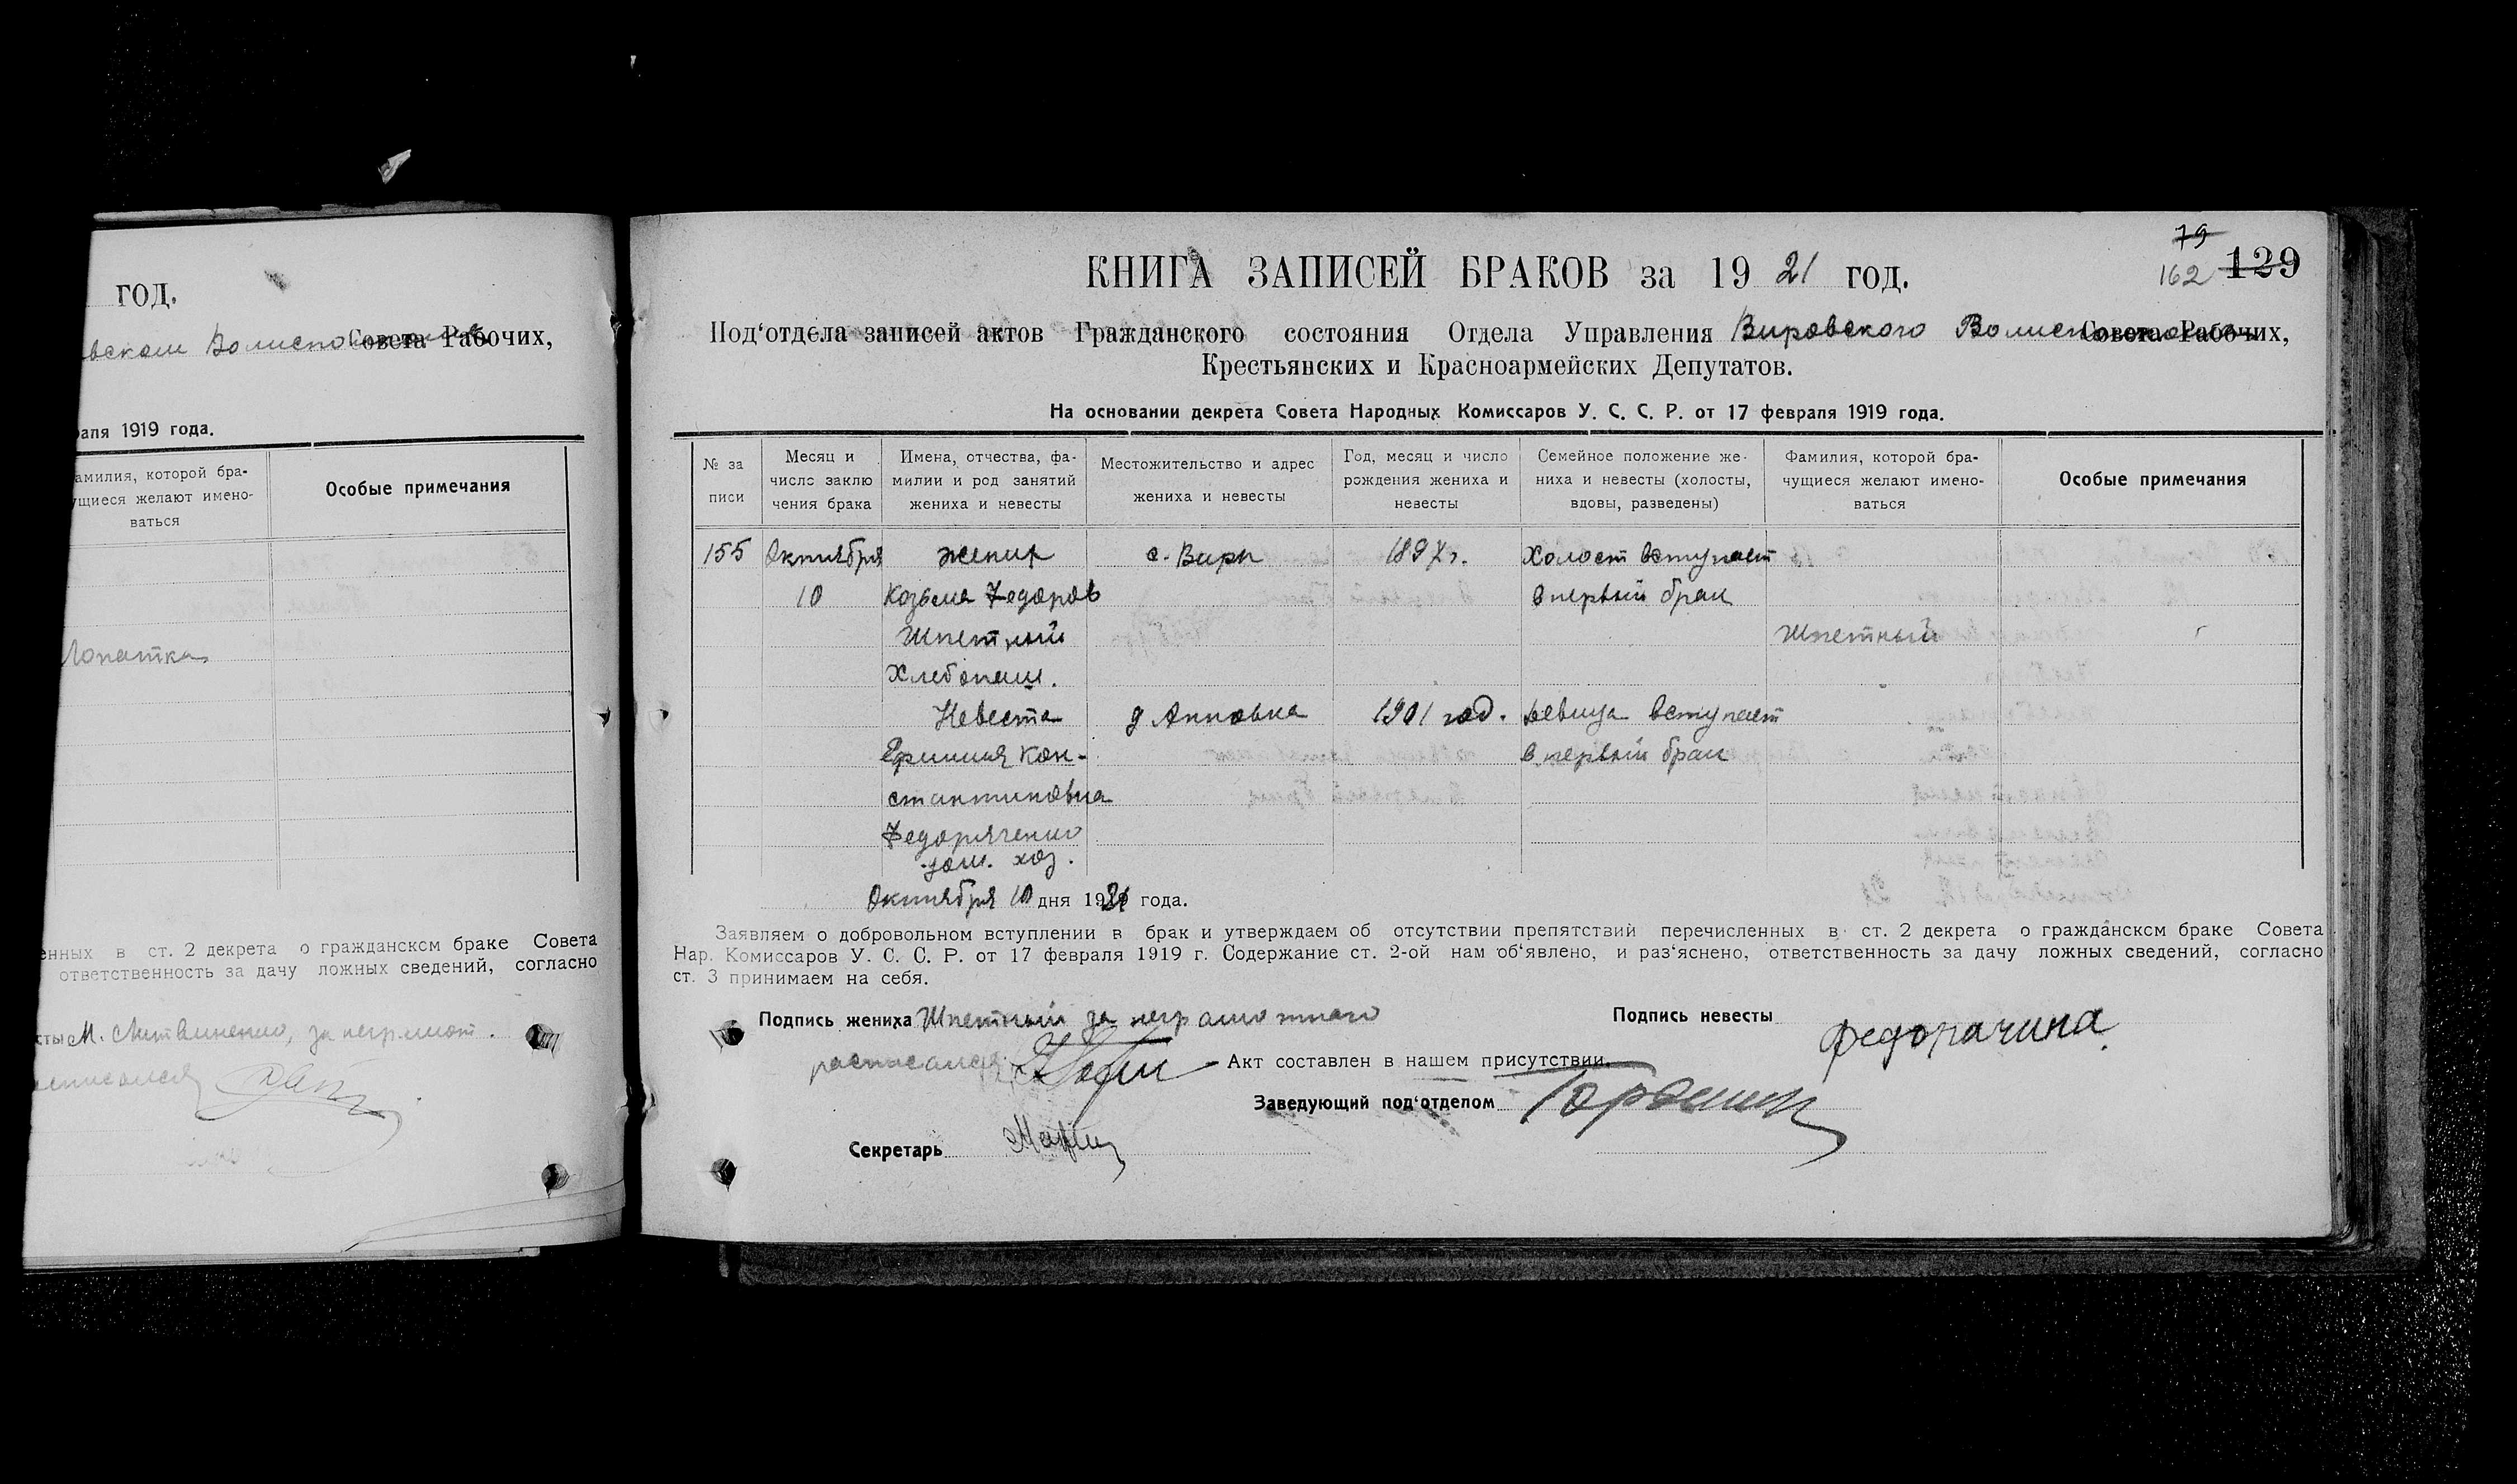 год.
Совета Рабочих,
1919 года.
которой бра-
желают имено-
ваться
Особые примечания
Лопатка
в ст. 2 декрета о гражданском браке Совета
ответственность за дачу ложных сведений, согласно
М. Литвиненко, за неграмот.
79
162 129
КНИГА ЗАПИСЕЙ БРАКОВ за 1921 год.
Под‘отдела записей актов Гражданского состояния Отдела Управления Вировского Волисполкома Совета Рабочих,
Крестьянских и Красноармейских Депутатов.
На основании декрета Совета Народных Комиссаров У. С. С. Р. от 17 февраля 1919 года.
№ за
писи
Месяц и
число заклю
чения брака
Имена, отчества, фа-
милии и род занятий
жениха и невесты
Местожительство и адрес
жениха и невесты
Год, месяц и число
рождения жениха и
невесты
Семейное положение же-
ниха и невесты (холосты,
вдовы, разведены)
Фамилия, которой бра-
чущиеся желают имено-
ваться
Особые примечания
155 Октября жених с. Виры 1897 г. Холост вступает
10 Козьма Федоров в первый брак
Шпетный Шпетный
Хлебопаш.
Невеста д Анновка 1901 год. девица вступает
Ефимия Кон- в первый брак
стантиновна
Федоряченко
дом. хоз.
Октября 10 дня 1921 года.
Заявляем о добровольном вступлении в брак и утверждаем об отсутствии препятствий перечисленных в ст. 2 декрета о гражданском браке Совета
Нар. Комиссаров У. С. С. Р. от 17 февраля 1919 г. Содержание ст. 2-ой нам об‘явлено, и раз‘яснено, ответственность за дачу ложных сведений, согласно
ст. 3 принимаем на себя.
Подпись жениха Шпетный за неграмотного Подпись невесты Федорачина
расписался
Акт составлен в нашем присутствии.
Заведующий под‘отделом
Секретарь